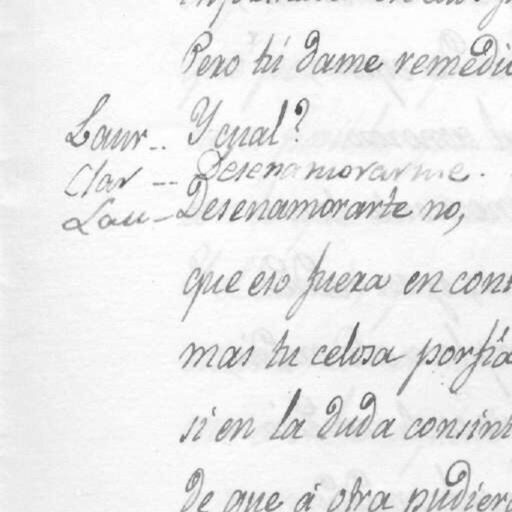 Pero tú dame remedio
Laur.. Y cual?
Clar -- Desenamorarme.
Lau- Desenamorarte no,
que eso fuera en
mas tu celosa porfía
si en la duda
de que á otra